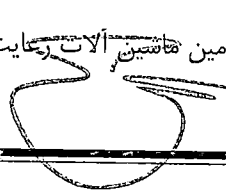 مین ماشین آلات رعایت